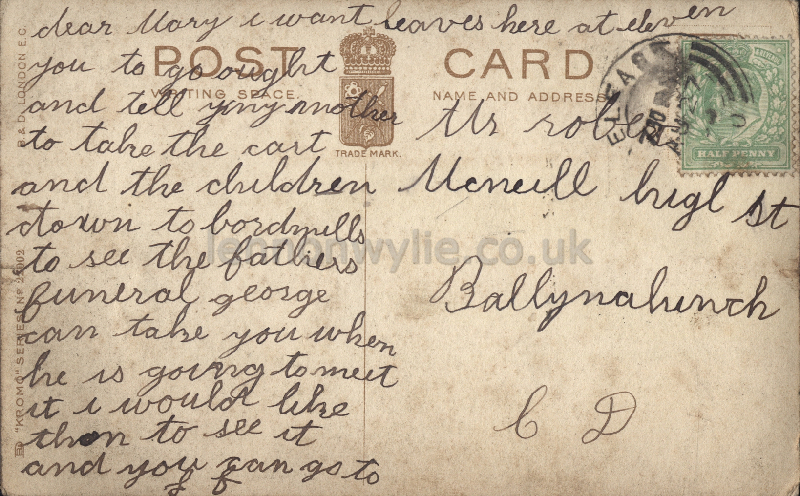 dear Mary i want
leaves here at eleven
you to go ought
and tell ymy mother
to take the cart
and the children
down to bordmills
to see the fathers
funeral george
can take you when
he is going to meet
it i would like
them to see it
and you can go to
POST CARD
WRITING SPACE.
NAME AND ADDRESS
TRADE MARK.
Mr robert
Mcneill high st
Ballynahinch
C D
BELFAST
HALF PENNY
B & D. LONDON E.C.
"KROMO" SERIES No
lennonwylie.co.uk